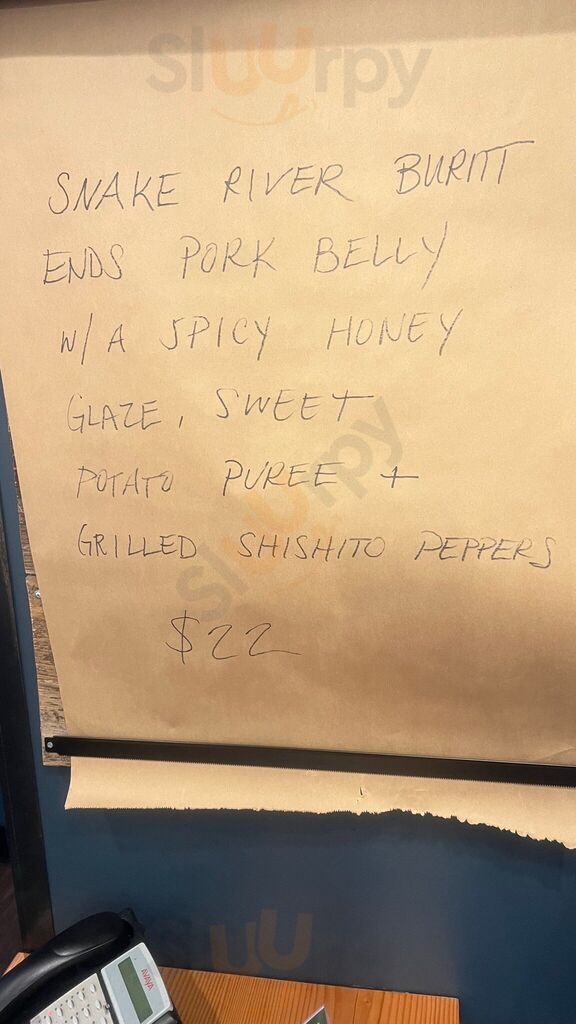 Sluurpy
SNAKE RIVER BURNT
ENDS PORK BELLY
W/ A SPICY HONEY
GLAZE, SWEET
POTATO PUREE +
GRILLED SHISHITO PEPPERS
$22
Sluurpy
AVAYA